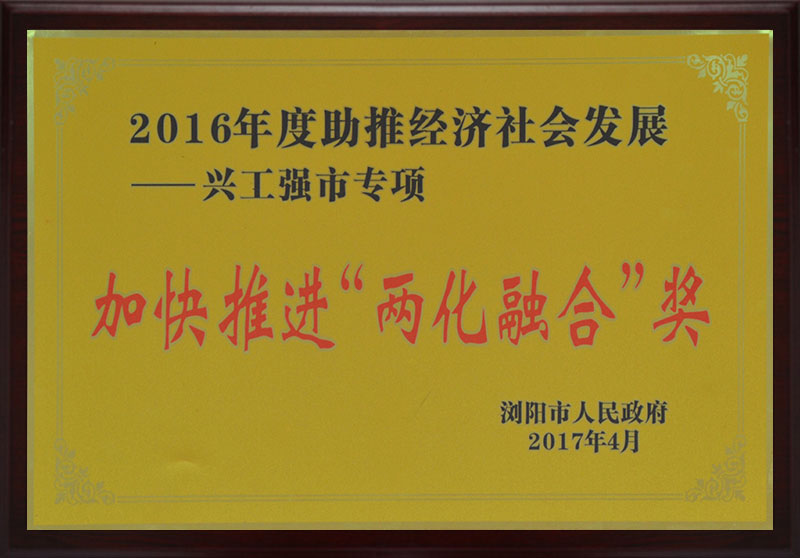 2016年度助推经济社会发展
——兴工强市专项
加快推进“两化融合”奖
浏阳市人民政府
2017年4月